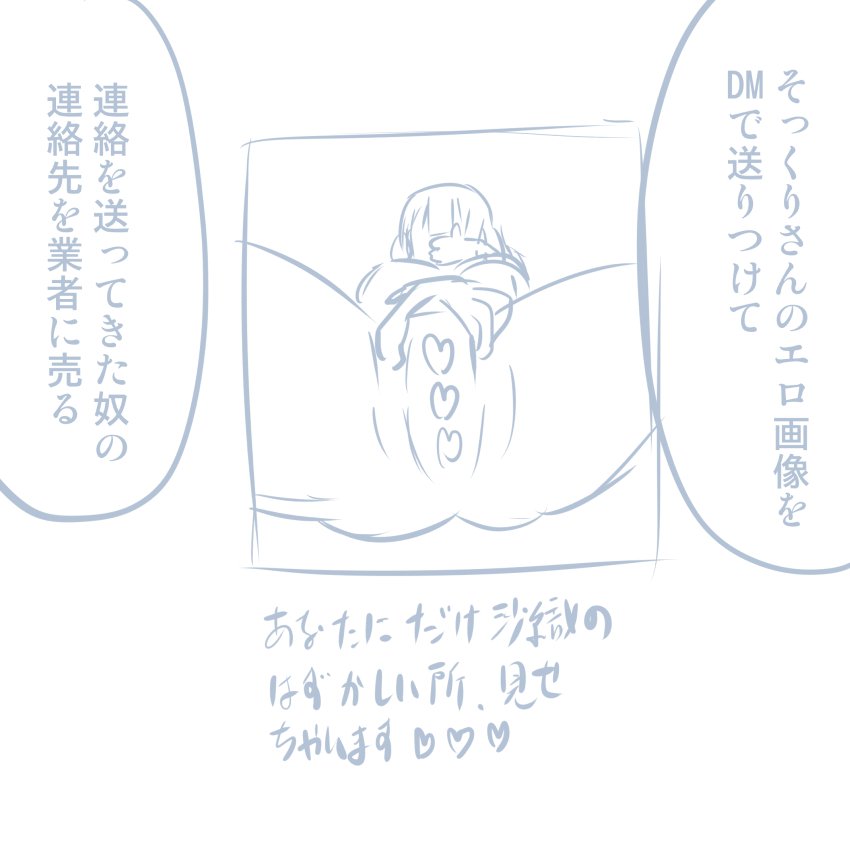 そっくりさんのエロ画像を
DMで送りつけて
連絡を送ってきた奴の
連絡先を業者に売る
あなたにだけ沙織の
はずかしい所、見せ
ちゃいます♡♡♡